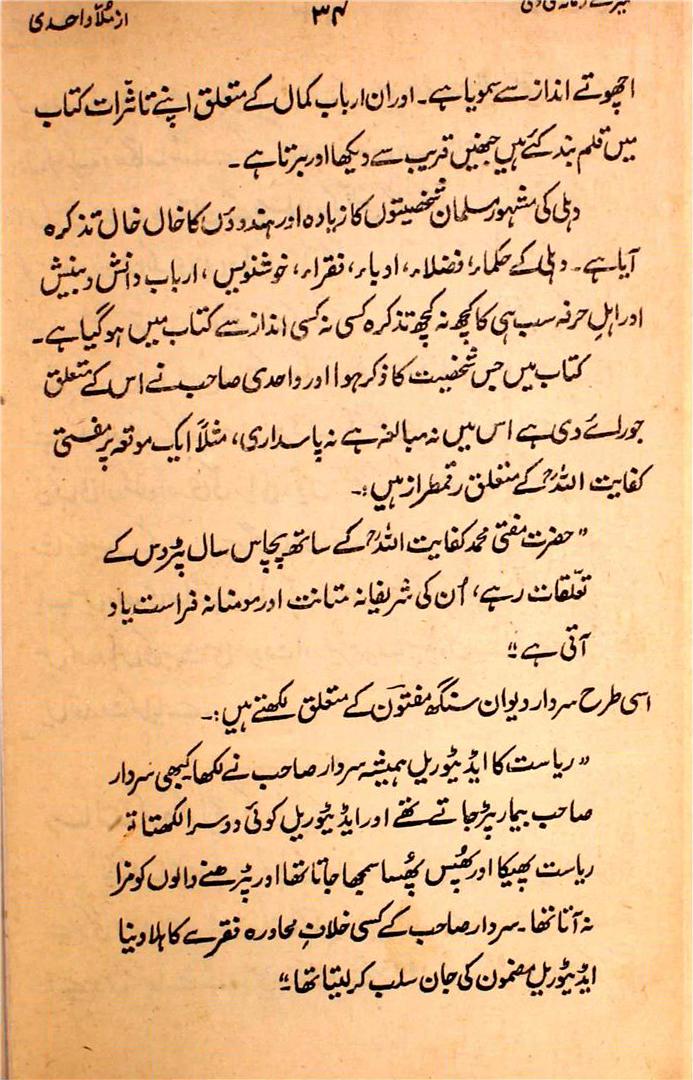 از مُلّا واحدی ۳۴ میرے زمانہ کی دلی
اچھوتے انداز سے سمویا ہے۔ اور ان اربابِ کمال کے متعلق اپنے تاثرات کتاب
میں قلم بند کئے ہیں جنھیں قریب سے دیکھا اور برتا ہے۔
دہلی کی مشہور مسلمان شخصیتوں کا زیادہ اور ہندوؤں کا خال خال تذکرہ
آیا ہے۔ دہلی کے حکماء، فضلاء، ادباء، فقراء، خوشنویس، ارباب دانش و بینش
اور اہلِ حرفہ سب ہی کا کچھ نہ کچھ تذکرہ کسی نہ کسی انداز سے کتاب میں ہو گیا ہے۔
کتاب میں جس شخصیت کا ذکر ہوا اور واحدی صاحب نے اس کے متعلق
جو رائے دی ہے اس میں نہ مبالغہ ہے نہ پاسداری، مثلاً ایک موقعہ پر مفتی
کفایت اللہؒ کے متعلق رقمطراز ہیں:۔
”حضرت مفتی محمد کفایت اللہؒ کے ساتھ پچاس سال پڑوس کے
تعلّقات رہے، اُن کی شریفانہ متانت اور مومنانہ فراست یاد
آتی ہے۔“
اسی طرح سردار دیوان سنگھ مفتونؔ کے متعلق لکھتے ہیں:۔
”ریاست کا ایڈیٹوریل ہمیشہ سردار صاحب نے لکھا۔ کبھی سردار
صاحب بیمار پڑ جاتے تھے اور ایڈیٹوریل کوئی دوسرا لکھتا تو
ریاست پھیکا اور پُھس پُھسا سمجھا جاتا تھا اور پڑھنے والوں کو مزا
نہ آتا تھا۔ سردار صاحب کے کسی خلافِ محاورہ فقرے کا ہلا دینا
ایڈیٹوریل مضمون کی جان سلب کر لیتا تھا۔“